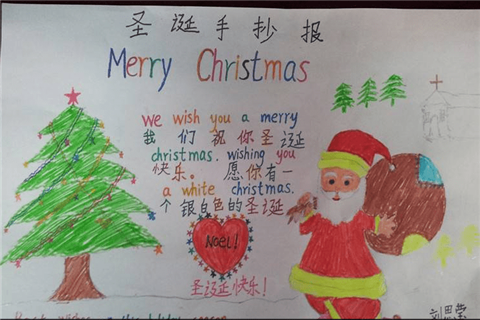 圣诞手抄报
Merry Christmas
we wish you a merry
我们祝你圣诞
christmas. wishing you
快乐。愿你有一
a white christmas.
个银白色的圣诞
Noel!
圣诞快乐!
Best wishes
season